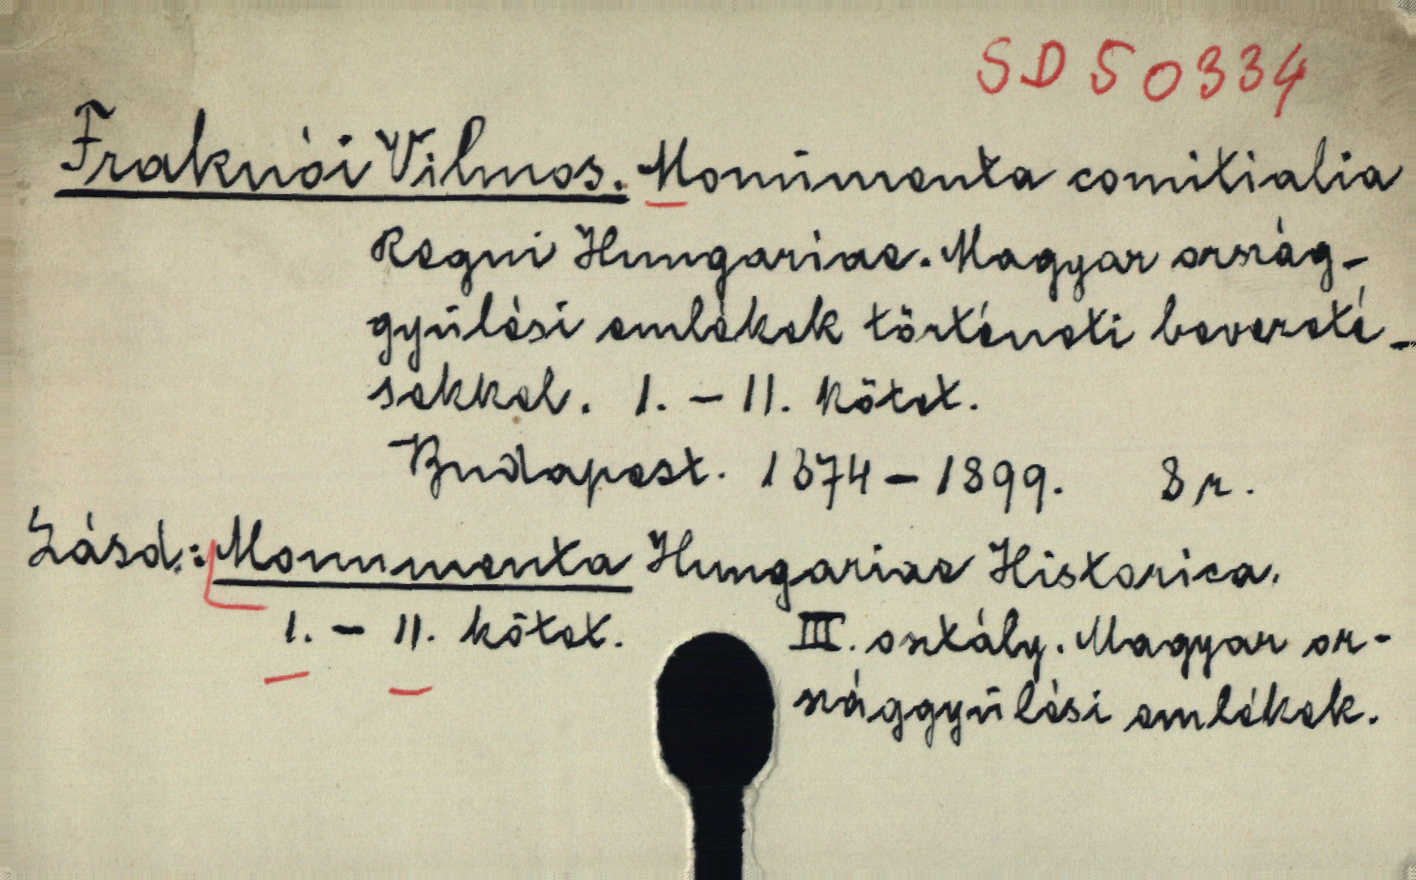 SD 50334
Fraknói Vilmos. Monumenta comitialia
Regni Hungariae. Magyar ország-
gyűlési emlékek történeti beveteté-
sekkel. I. - II. kötet.
Budapest. 1874 - 1899. 8 r.
Lásd: Monumenta Hungariae Historica.
I. - II. kötet. III. osztály. Magyar or-
szággyűlési emlékek.